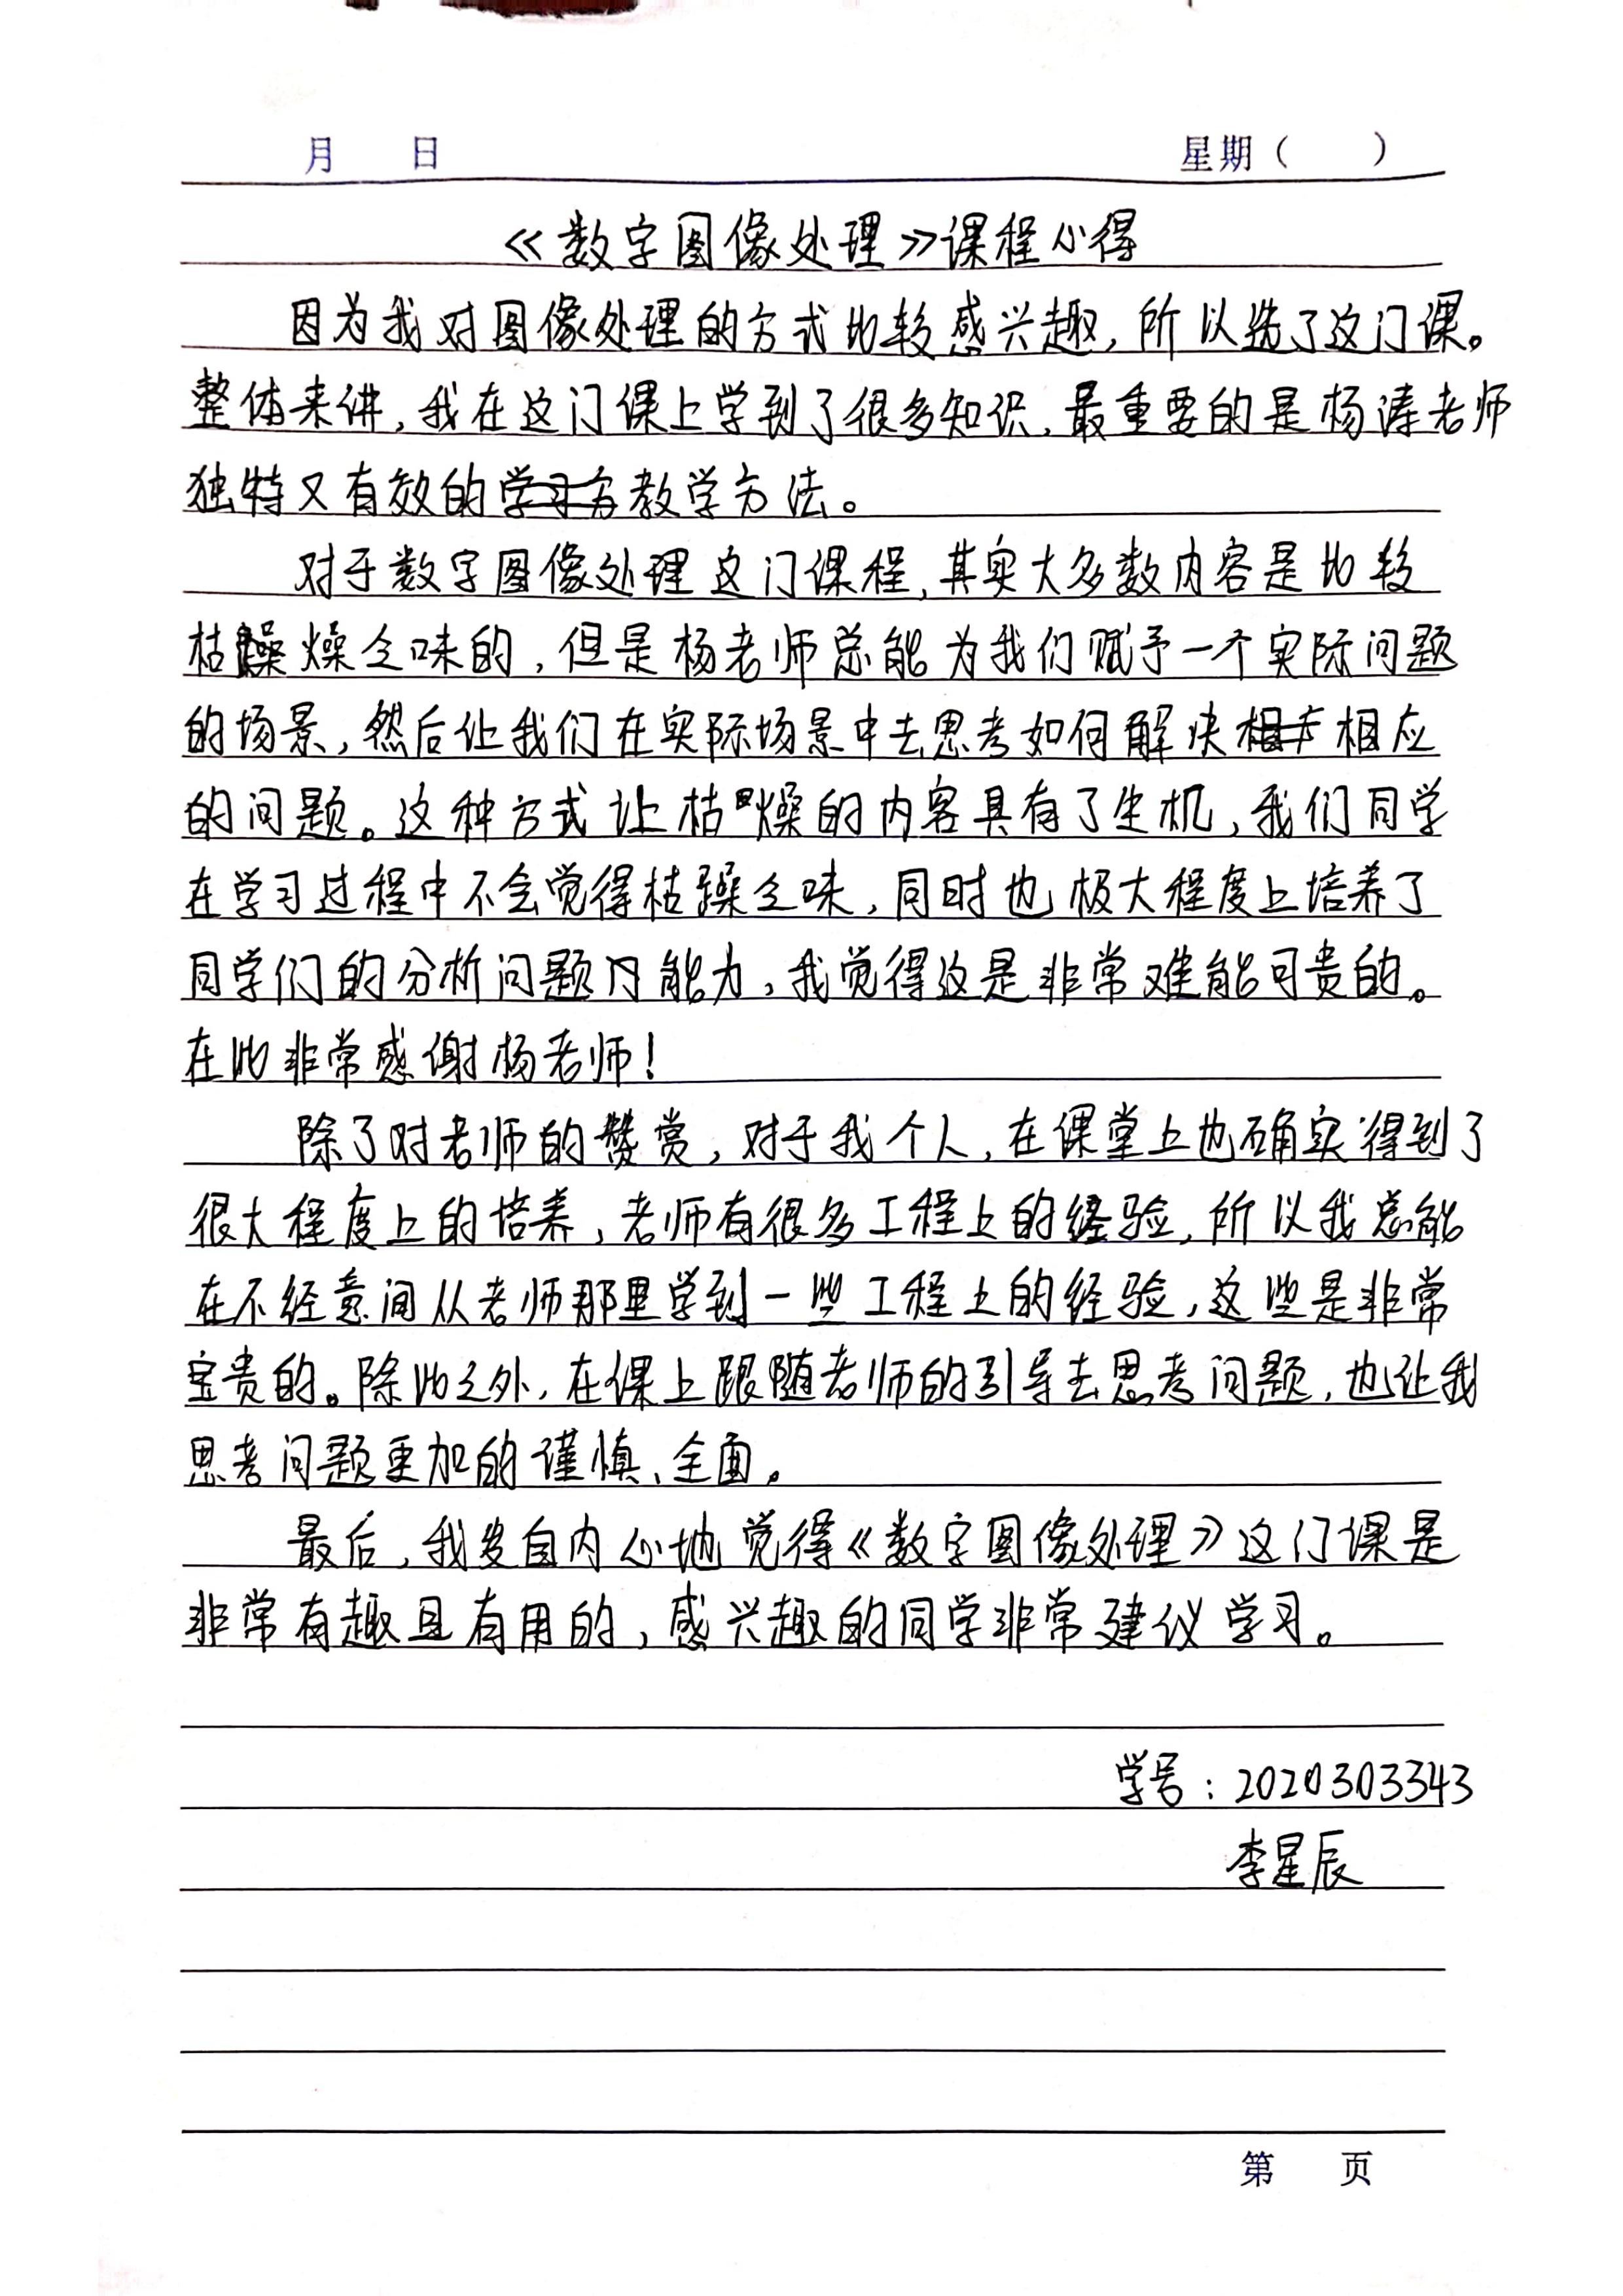 月 日 星期( )
《数字图像处理》课程心得
因为我对图像处理的方式比较感兴趣,所以选了这门课。
整体来讲,我在这门课上学到了很多知识,最重要的是杨涛老师
独特又有效的教学方法。
对于数字图像处理这门课程,其实大多数内容是比较
枯燥乏味的,但是杨老师总能为我们赋予一个实际问题
的场景,然后让我们在实际场景中去思考如何解决相应
的问题。这种方式让枯燥的内容具有了生机,我们同学
在学习过程中不会觉得枯躁乏味,同时也极大程度上培养了
同学们的分析问题的能力,我觉得这是非常难能可贵的。
在此非常感谢杨老师!
除了对老师的赞赏,对于我个人,在课堂上也确实得到了
很大程度上的培养,老师有很多工程上的经验,所以我总能
在不经意间从老师那里学到一些工程上的经验,这些是非常
宝贵的。除此之外,在课上跟随老师的引导去思考问题,也让我
思考问题更加的谨慎、全面。
最后,我发自内心地觉得《数字图像处理》这门课是
非常有趣且有用的,感兴趣的同学非常建议学习。
学号:2020303343
李星辰
第 页